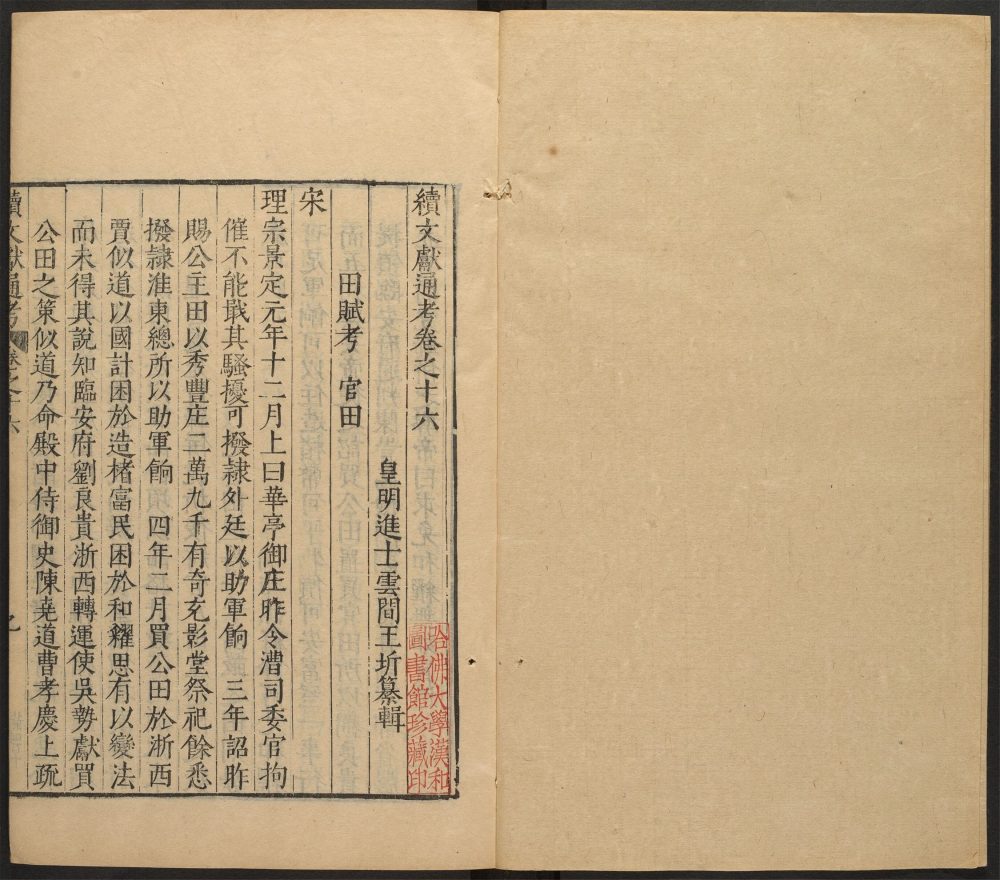 續文獻通考卷之十六
皇明進士雲間王圻纂輯
田賦考 官田
宋
理宗景定元年十二月上曰華亭御庄昨令漕司委官拘
催不能戢其騷擾可撥隸外廷以助軍餉三年詔昨
賜公主田以秀豐庄二萬九千有奇充影堂祭祀餘悉
撥隸淮東總所以助軍餉 四年二月買公田於浙西
賈似道以國計困於造楮富民困於和糴思有以變法
而未得其說知臨安府劉良貴浙西轉運使吳勢獻買
公田之策似道乃命殿中侍御史陳堯道曹孝慶上疏
續文獻通考 卷之十六
哈佛大學漢和
圖書館珍藏印